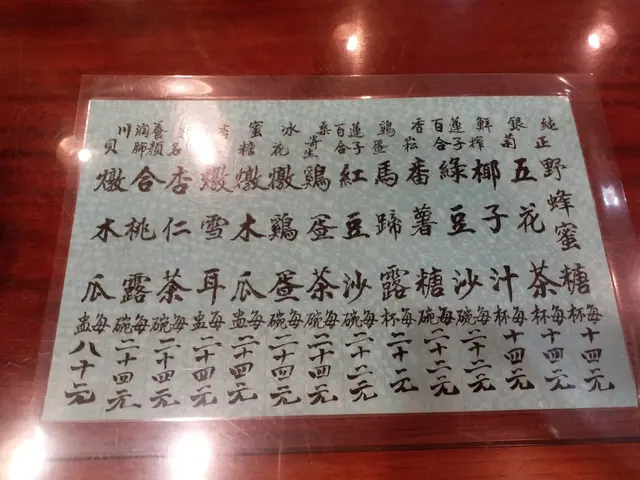 純正野蜂蜜糖每杯十四元
銀菊五花茶每杯十四元
鮮榨椰子汁每杯十四元
蓮子百合綠豆沙每碗二十二元
香菘番薯糖每碗二十二元
鷄蛋馬蹄露每杯二十元
蓮子百合紅豆沙每碗二十二元
桑寄生鷄蛋茶每碗二十四元
冰花燉鷄蛋每盅二十四元
蜜糖燉木瓜每盅二十四元
燉雪耳每盅二十四元
杏仁茶每碗二十四元
養顏潤肺合桃露每碗二十四元
川貝燉木瓜每盅八十元